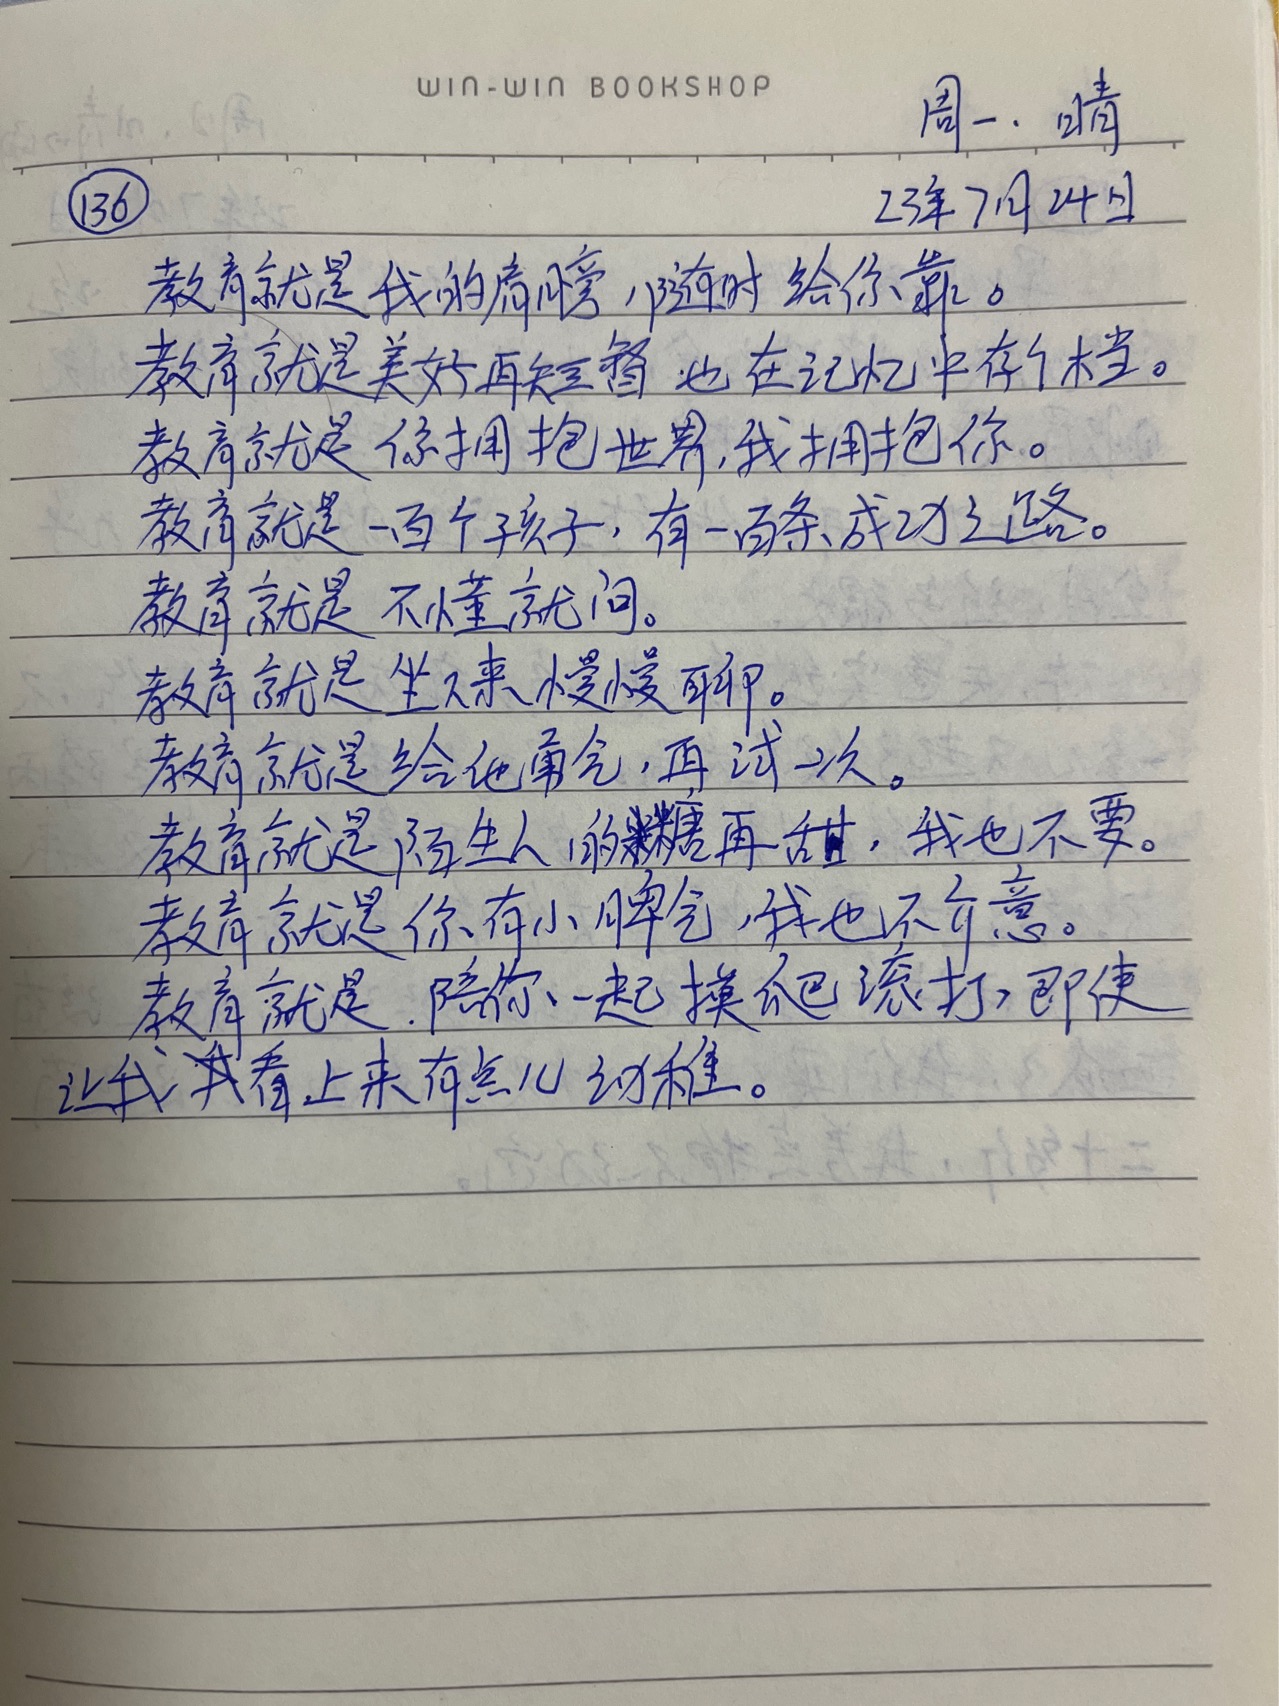 WIN-WIN BOOKSHOP
周一. 晴
136
23年7月24日
教育就是我的肩膀，随时给你靠。
教育就是美好再短暂也在记忆中存个档。
教育就是你拥抱世界，我拥抱你。
教育就是一百个孩子，有一百条成功之路。
教育就是不懂就问。
教育就是坐下来慢慢聊。
教育就是给他勇气，再试一次。
教育就是陌生人的糖再甜，我也不要。
教育就是你有小脾气，我也不介意。
教育就是陪你一起摸爬滚打，即使
让我看上来有点儿幼稚。